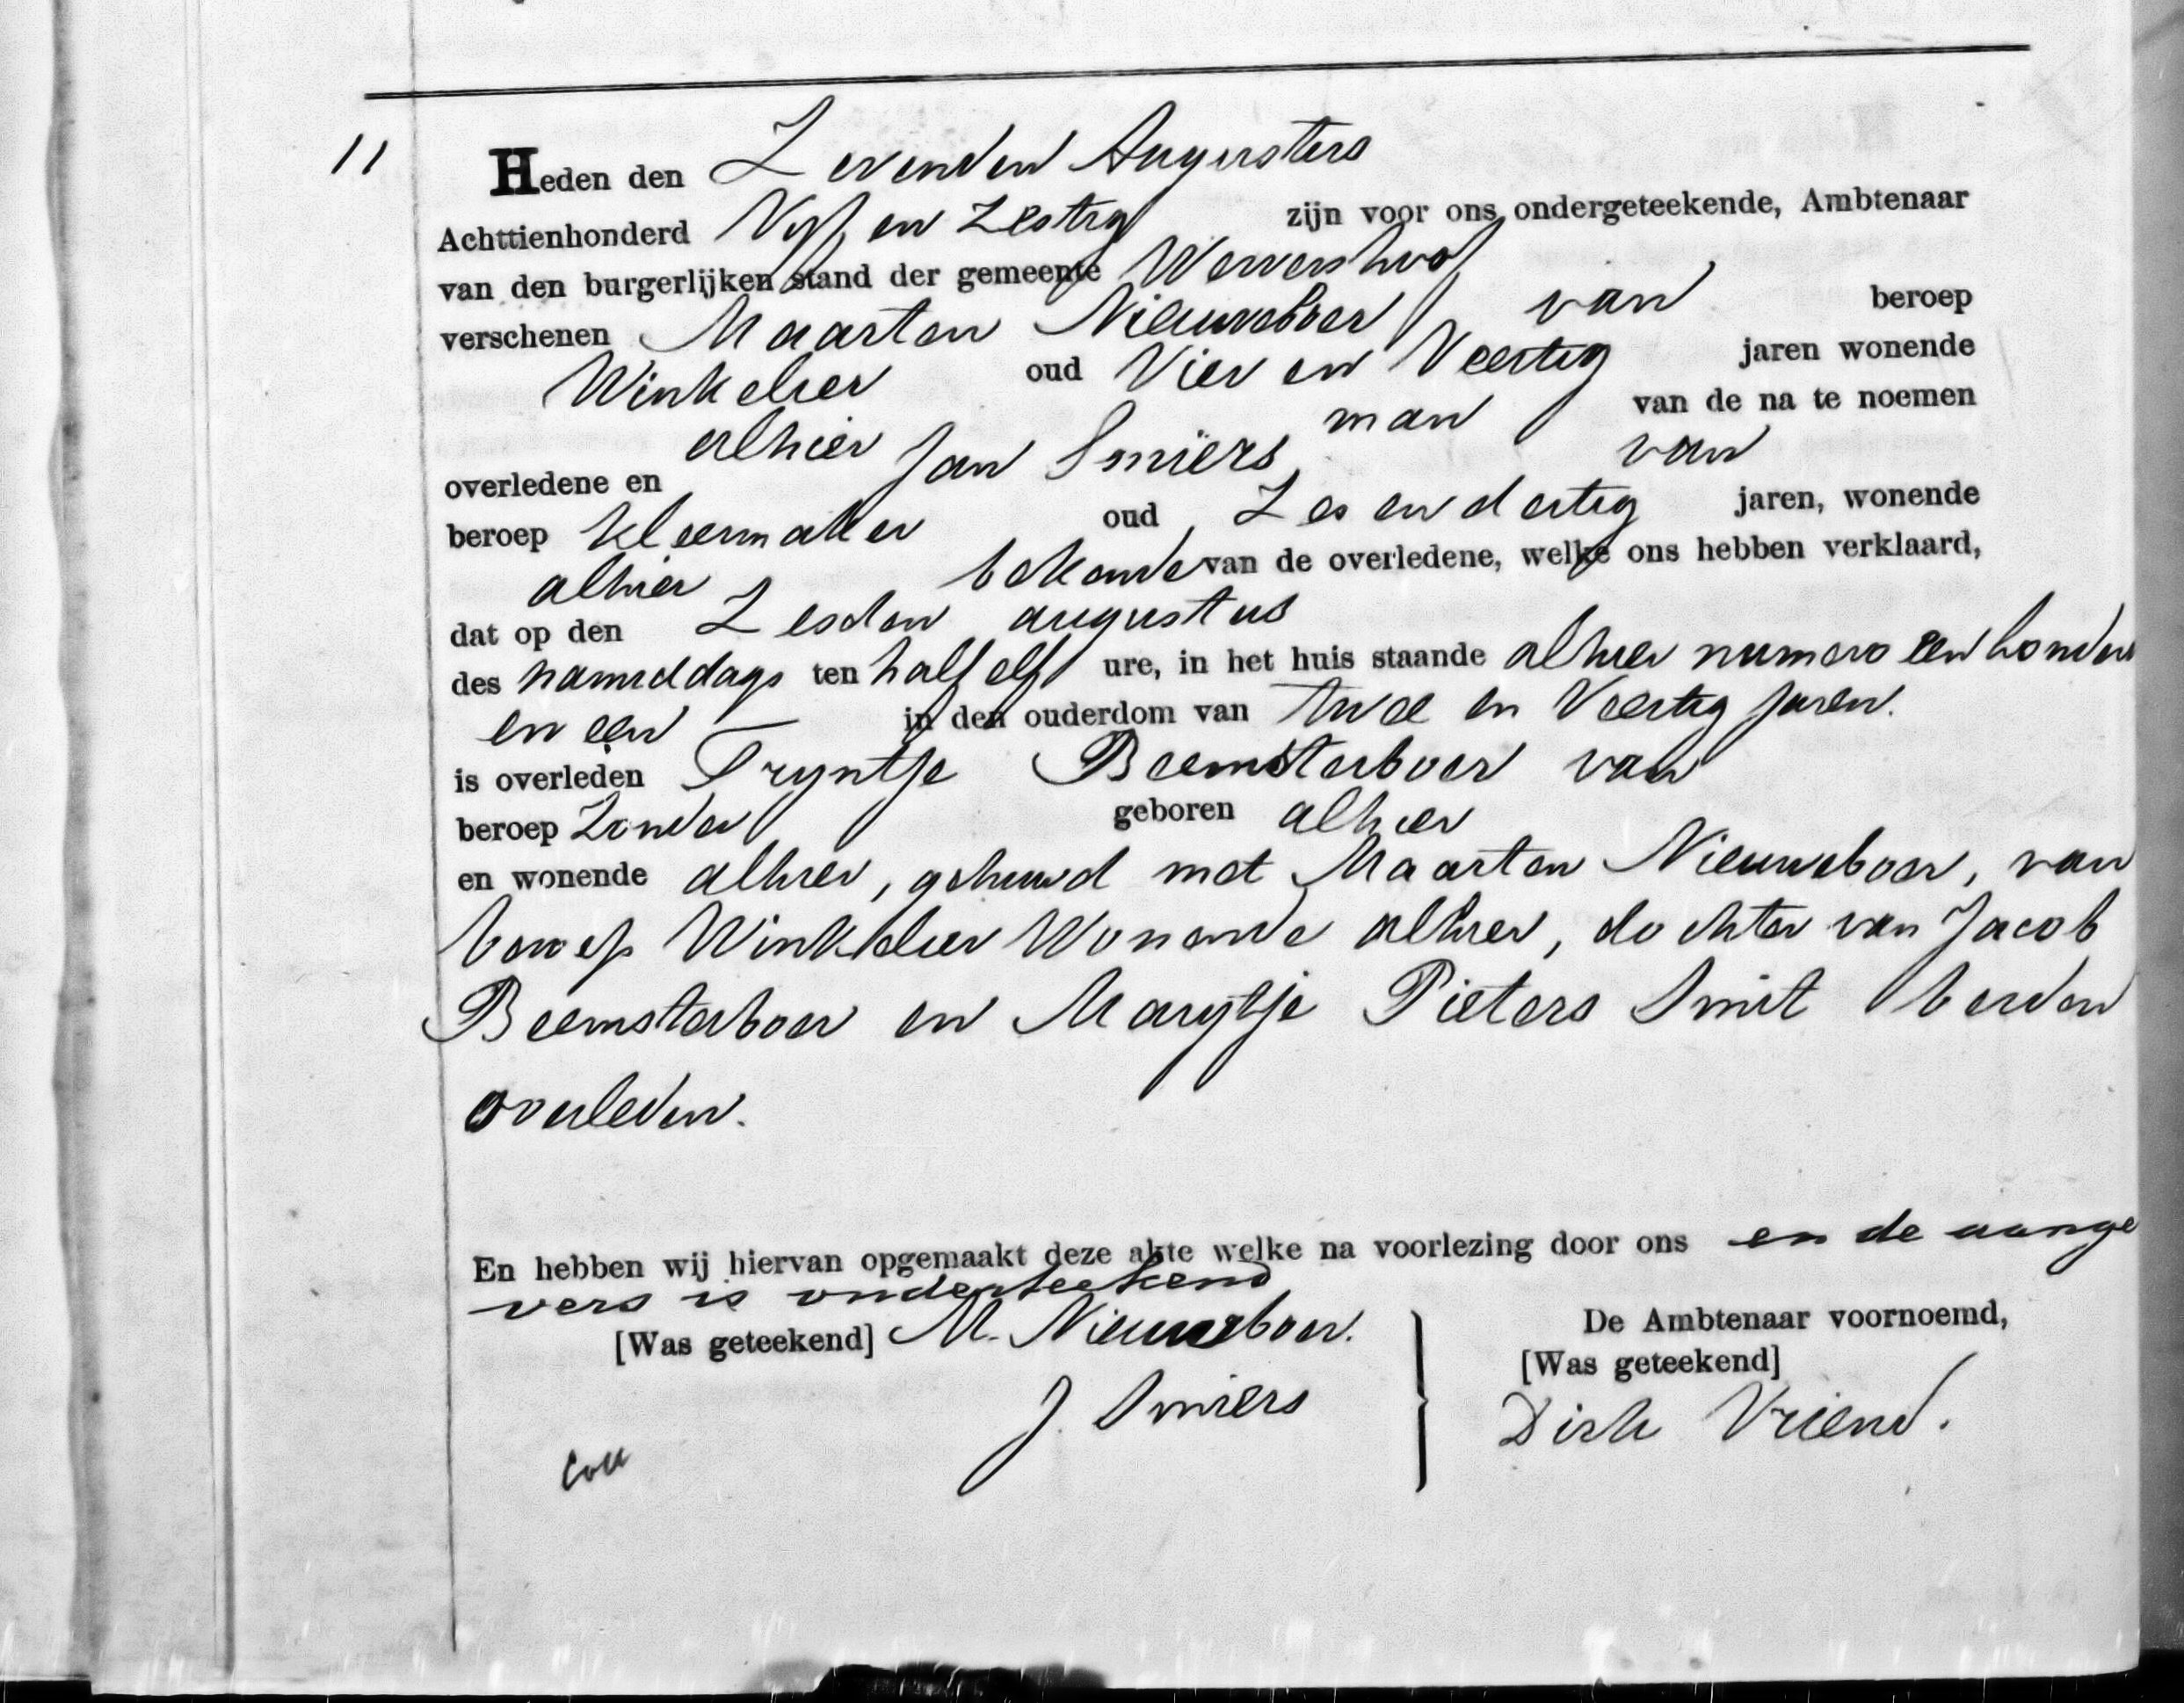 11
Heden den Zevenden Augustus
Achttienhonderd Vyf en Zestig zijn voor ons ondergeteekende, Ambtenaar
van den burgerlijken stand der gemeente Wervershoof
verschenen Maarten Nieuweboer van beroep
Winkelier oud Vier en Veertig jaren wonende
alhier man van de na te noemen
overledene en Jan Smiers, van
beroep kleermaker oud Zes en dertig jaren, wonende
alhier bekende van de overledene, welke ons hebben verklaard,
dat op den Zesden augustus
des namiddags ten half elf ure, in het huis staande alhier numero een honder
en een — in den ouderdom van twee en Veertig jaren.
is overleden Tryntje Beemsterboer van
beroep Zonder geboren alhier
en wonende alhier, gehuwd met Maarten Nieuweboer, van
beroep Winkelier Wonende alhier, dochter van Jacob
Beemsterboer en Marytje Pieters Smit beiden
overleden.
En hebben wij hiervan opgemaakt deze akte welke na voorlezing door ons en de aange
vers is onderteekend
[Was geteekend] M. Nieuweboer.
De Ambtenaar voornoemd,
[Was geteekend]
J. Smiers
Dirk Vriend.
Coll